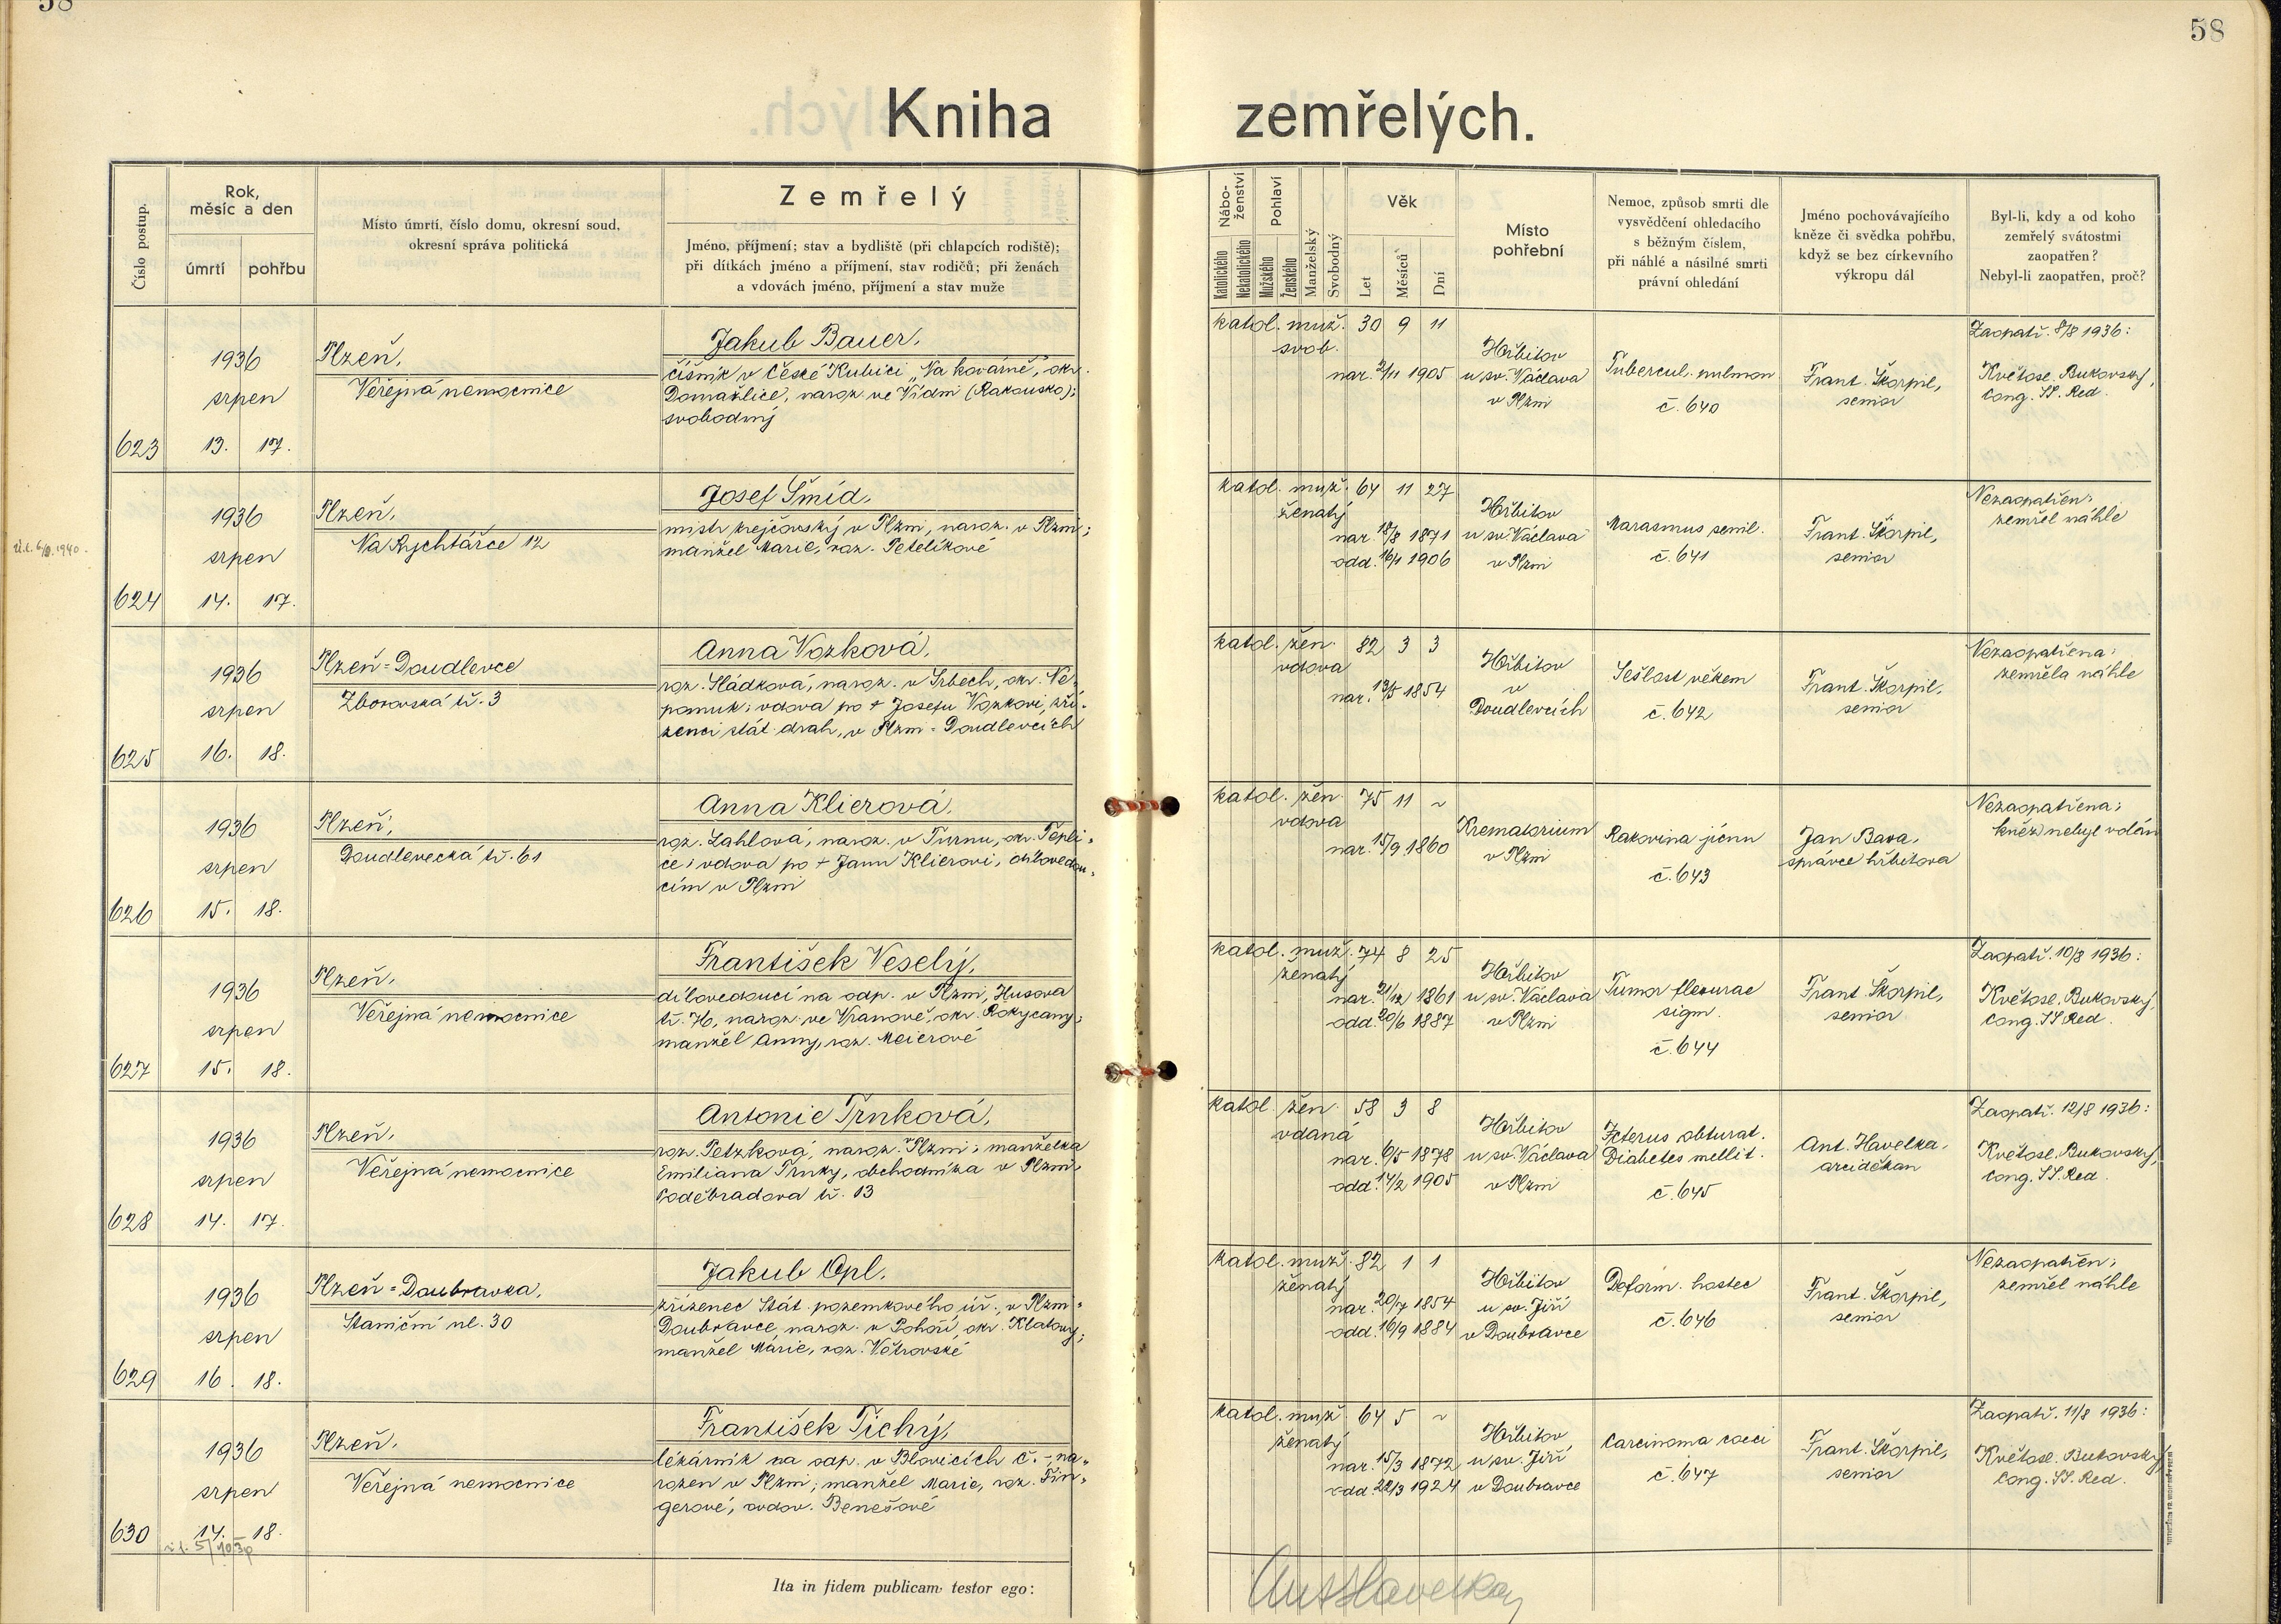 58
58
Kniha zemřelých.
Číslo postup.
Rok, měsíc a den
úmrtí
pohřbu
Místo úmrtí, číslo domu, okresní soud,
okresní správa politická
Zemřelý
Jméno, příjmení; stav a bydliště (při chlapcích rodiště);
při dítkách jméno a příjmení, stav rodičů; při ženách
a vdovách jméno, příjmení a stav muže
Nábo-
ženství
Katolického
Nekatolického
Pohlaví
Mužského
Ženského
Manželský
Svobodný
Věk
Let
Měsíců
Dní
Místo
pohřební
Nemoc, způsob smrti dle
vysvědčení ohledacího
s běžným číslem,
při náhlé a násilné smrti
právní ohledání
Jméno pochovávajícího
kněze či svědka pohřbu,
když se bez církevního
výkropu dál
Byl-li, kdy a od koho
zemřelý svátostmi
zaopatřen?
Nebyl-li zaopatřen, proč?
623
1936
srpen
13. 17.
Plzeň,
Veřejná nemocnice
Jakub Bauer,
číšník v České Kubici „Na kovárně", okr.
Domažlice, naroz. ve Vídni (Rakousko);
svobodný
katol. muž. 30 9 11
svob.
nar. 2/11 1905
Hřbitov
u sv. Václava
v Plzni
Tubercul. pulmon
č. 640
Frant. Škorpil,
senior
Zaopatř. 8/8 1936:
Květosl. Bukovský,
Cong. SS. Red.
624
1936
srpen
14. 17.
Plzeň,
Na Rychtářce 12
Josef Šmíd,
mistr krejčovský v Plzni, naroz. v Plzni;
manžel Marie, roz. Petelíkové
katol. muž. 64 11 27
ženatý
nar. 18/8 1871
odd. 16/1 1906
Hřbitov
u sv. Václava
v Plzni
Marasmus senil.
č. 641
Frant. Škorpil,
senior
Nezaopatřen;
zemřel náhle
625
1936
srpen
16. 18.
Plzeň=Doudlevce
Zborovská tř. 3
Anna Vozková,
roz. Sládková, naroz. v Srbech, okr. Ne-
pomuk; vdova po + Josefu Vozkovi, zří-
zenci stát. drah, v Plzni=Doudlevcích
katol. žen. 82 3 3
vdova
nar. 13/5 1854
Hřbitov
v
Doudlevcích
Sešlost věkem
č. 642
Frant. Škorpil,
senior
Nezaopatřena;
zemřela náhle
626
1936
srpen
15. 18.
Plzeň,
Doudlevecká tř. 61
Anna Klierová,
roz. Zahlová, naroz. v Turnu, okr. Tepli=
ce; vdova po + Janu Klierovi, dílovedou=
cím v Plzni
katol. žen. 75 11 ~
vdova
nar. 15/9 1860
Krematorium
v Plzni
Rakovina jícnu
č. 643
Jan Bara,
správce hřbitova
Nezaopatřena;
kněz nebyl volán
627
1936
srpen
15. 18.
Plzeň,
Veřejná nemocnice
František Veselý,
dílovedoucí na odp. v Plzni, Husova
tř. 76, naroz. ve Vranově, okr. Rokycany;
manžel Anny, roz. Meierové
katol. muž. 74 8 25
ženatý
nar. 21/12 1861
odd. 20/6 1887
Hřbitov
u sv. Václava
v Plzni
Tumor flexurae
sigm.
č. 644
Frant. Škorpil,
senior
Zaopatř. 10/8 1936:
Květosl. Bukovský,
Cong. SS. Red.
628
1936
srpen
14. 17.
Plzeň,
Veřejná nemocnice
Antonie Trnková,
roz. Petzková, naroz. v Plzni; manželka
Emiliana Trnky, obchodníka v Plzni,
Poděbradova tř. 13
katol. žen. 58 3 8
vdaná
nar. 6/5 1878
odd. 14/2 1905
Hřbitov
u sv. Václava
v Plzni
Icterus obturat.
Diabetes mellit.
č. 645
Ant. Havelka,
arciděkan
Zaopatř. 12/8 1936:
Květosl. Bukovský,
Cong. SS. Red.
629
1936
srpen
16. 18.
Plzeň=Doubravka,
Staniční ul. 30
Jakub Opl,
zřízenec Stát. pozemkového úř., v Plzni=
Doubravce, naroz. v Pohoří, okr. Klatovy;
manžel Marie, roz. Větrovské
katol. muž. 82 1 1
ženatý
nar. 20/7 1854
odd. 16/9 1884
Hřbitov
u sv. Jiří
v Doubravce
Deform. hostec
č. 646
Frant. Škorpil,
senior
Nezaopatřen;
zemřel náhle
630
1936
srpen
14. 18.
Plzeň,
Veřejná nemocnice
František Tichý,
lékárník na odp. v Blovicích č. -, na=
rozen v Plzni; manžel Marie, roz. Fin=
gerové, ovdov. Benešové
katol. muž. 64 5 ~
ženatý
nar. 15/3 1872
odd. 22/3 1924
Hřbitov
u sv. Jiří
v Doubravce
Carcinoma coeci
č. 647
Frant. Škorpil,
senior
Zaopatř. 11/8 1936:
Květosl. Bukovský,
Cong. SS. Red.
Ita in fidem publicam testor ego:
Ant Havelka